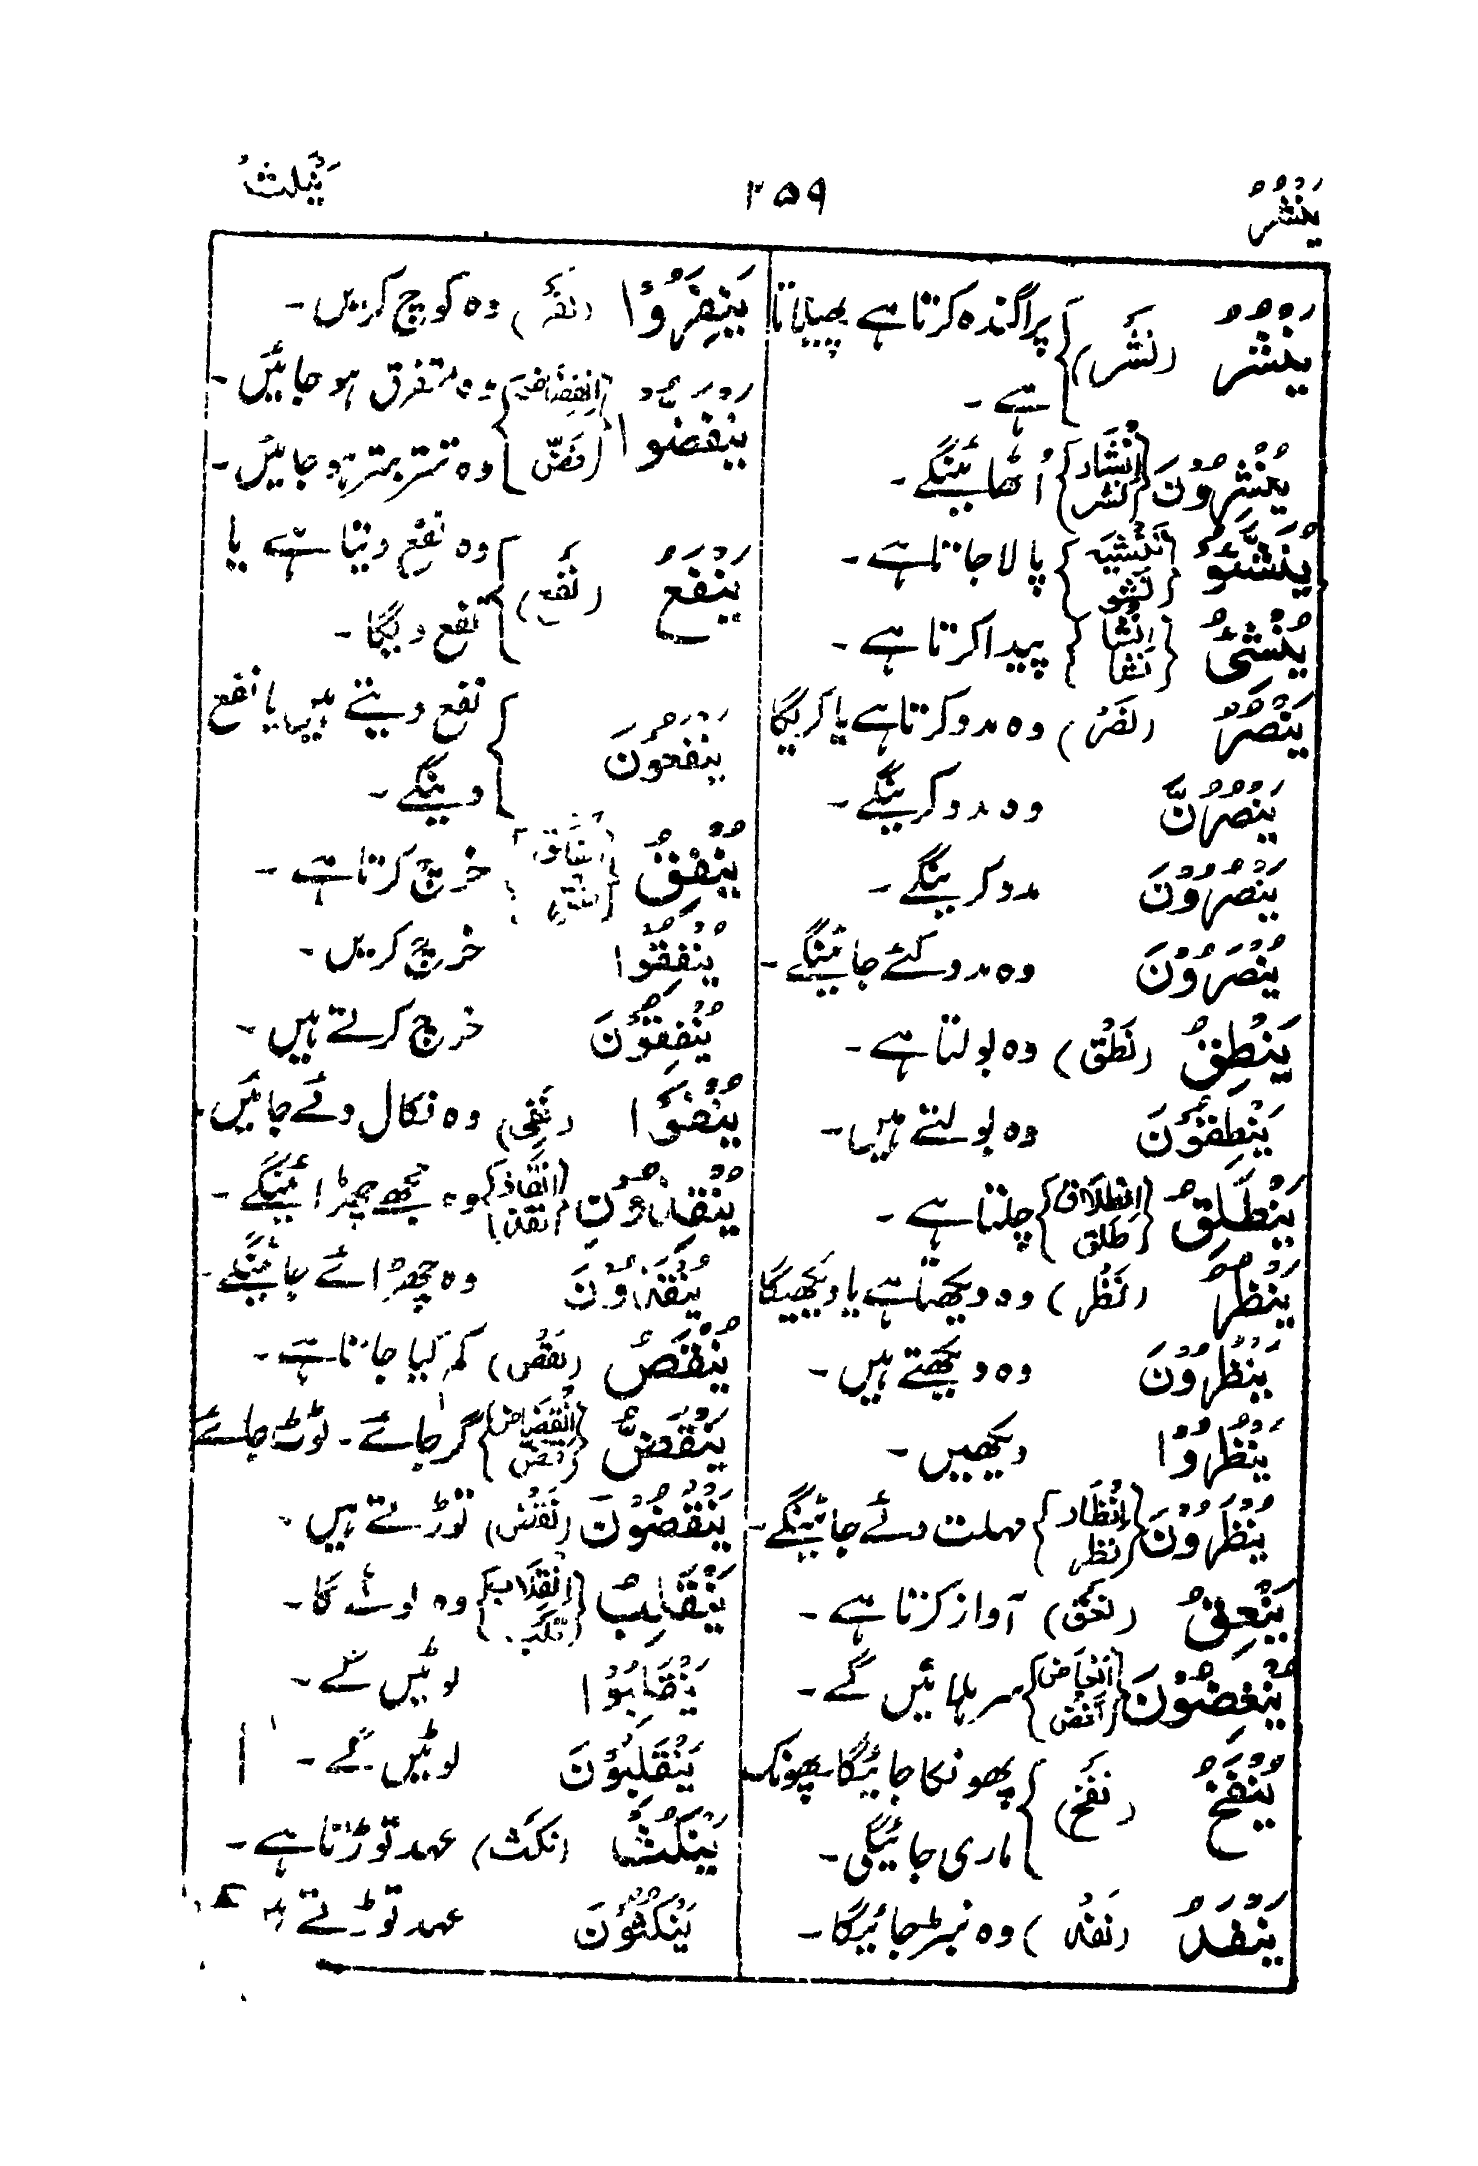 یَنْشُرُ
۲۵۹
یَنْکُثُ
یَنْشُرُ (نَشَرَ) پراگندہ کرتا ہے پھیلاتا
ہے۔
یُنْشِرُوْنَ (اِنْشَاد نشر) اُٹھائینگے۔
یُنَشَّؤُ (تَنْشِیَہ نَشو) پالا جاتا ہے۔
یُنْشِیُٔ (اِنْشَا نشا) پیدا کرتا ہے۔
یَنْصُرُ (نَصَرَ) وہ مدد کرتا ہے یا کریگا
یَنْصُرُنَّ وہ مدد کرینگے۔
یَنْصُرُوْنَ مدد کرینگے۔
یُنْصَرُوْنَ وہ مدد کئے جائینگے۔
یَنْطِقُ (نَطَقَ) وہ بولتا ہے۔
یَنْطِقُوْنَ وہ بولتے ہیں۔
یَنْطَلِقُ (اِنْطِلَاق طلق) چلتا ہے۔
یَنْظُرُ (نَظَرَ) وہ دیکھتا ہے یا دیکھیگا
یَنْظُرُوْنَ وہ دیکھتے ہیں۔
یَنْظُرُوْا دیکھیں۔
یُنْظَرُوْنَ (اِنْظَار نظر) مہلت دئے جائینگے۔
یَنْعِقُ (نَعَقَ) آواز کرتا ہے۔
یُنْغِضُوْنَ (اِنْغَاض نغض) سر ہلائیں گے۔
یُنْفَخُ (نَفَخَ) پھونکا جائیگا پھونک
ماری جائیگی۔
یَنْفَدُ (نفد) وہ نبڑ جائیگا۔
یَنْفِرُوْا (نَفَرَ) وہ کوچ کریں۔
یَنْفَضُّوْا (اِنْفِضَاض فضّ) وہ متفرق ہو جائیں۔
وہ تتر بتر ہو جائیں۔
یَنْفَعُ (نَفَعَ) وہ نفع دیتا ہے یا
نفع دیگا۔
یَنْفَعُوْنَ نفع دیتے ہیں یا نفع
دینگے۔
یُنْفِقُ (اِنفاق نفق) خرچ کرتا ہے۔
یُنْفِقُوْا خرچ کریں۔
یُنْفِقُوْنَ خرچ کرتے ہیں۔
یُنْفَوْا (نَفٰی) وہ نکال دئے جائیں۔
یُنْقِذُوْنِ (اِنْقَاذ نقذ) وہ مجھے چھڑائینگے۔
یُنْقَذُوْنَ وہ چھڑائے جائینگے۔
یُنْقَصُ (نَقَصَ) کم کیا جاتا ہے۔
یَنْقَضُّ (اِنْقِضَاض قضّ) گر جائے۔ ٹوٹ جائے
یَنْقُضُوْنَ (نَقَضَ) توڑتے ہیں۔
یَنْقَلِبُ (اِنْقِلَاب قلب) وہ لوٹے گا۔
یَنْقَلِبُوْا لوٹیں گے۔
یَنْقَلِبُوْنَ لوٹیں گے۔
یَنْکُثُ (نکث) عہد توڑتا ہے۔
یَنْکُثُوْنَ عہد توڑتے